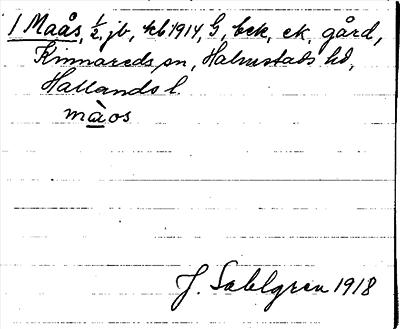 1 Maås, 1/2, jb, kb 1914, G, bck, ek. gård,
Kinnareds sn, Halmstads hd,
Hallands l.
màos
J. Sahlgren 1918